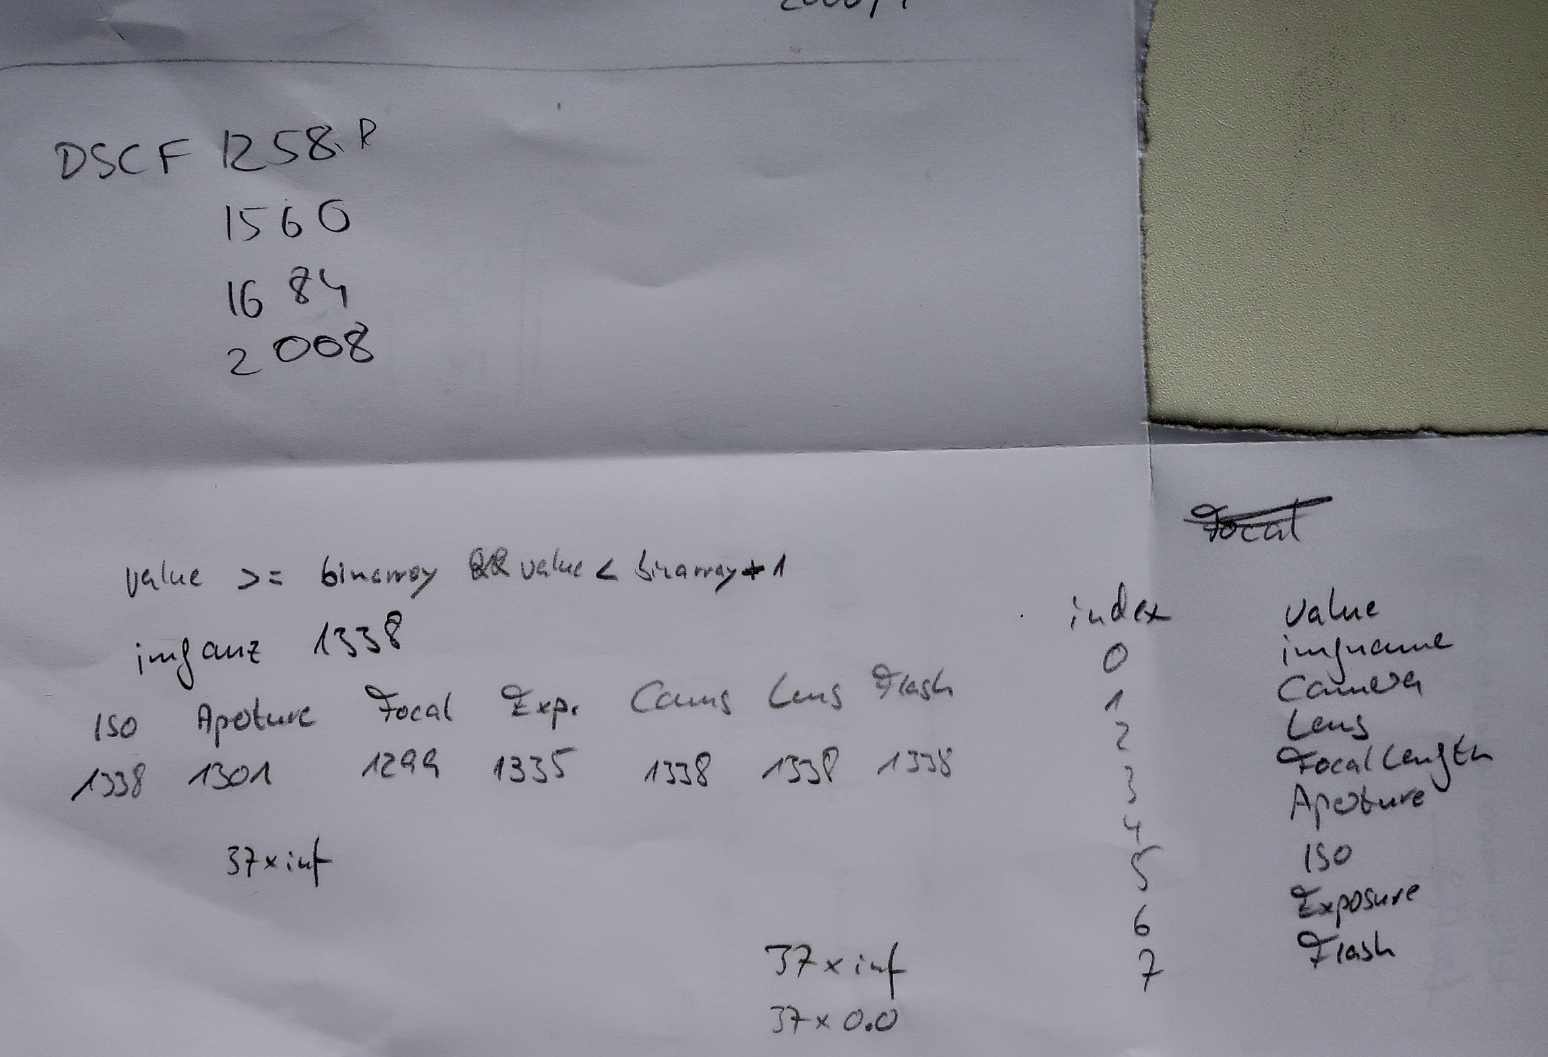 DSCF 1258.R
1560
1684
2008
Focal
value >= binarray && value < binarray + 1
imganz 1338
ISO Aperture Focal Exp. Cams Lens Flash
1338 1301 1299 1335 1338 1338 1338
37 x inf
37 x inf
37 x 0.0
index value
0 imgname
1 Camera
2 Lens
3 Focal Length
4 Aperture
5 ISO
6 Exposure
7 Flash